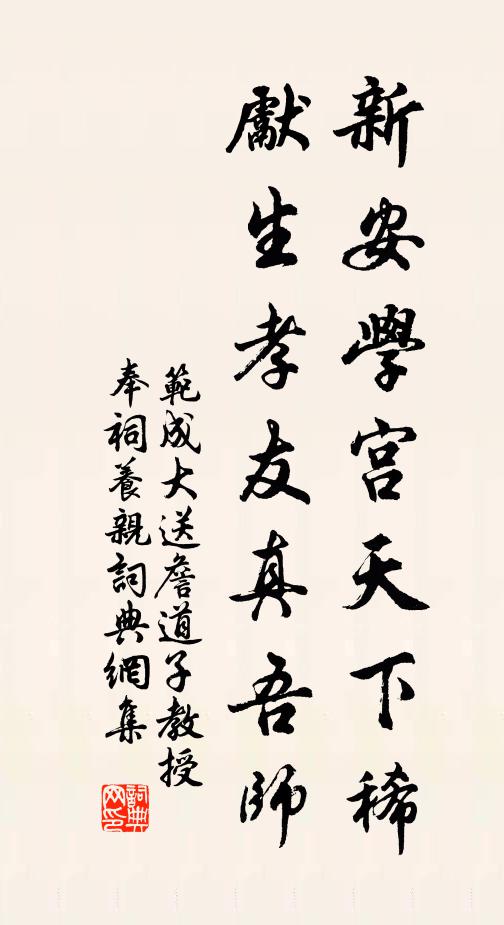 新安學宮天下稀
獻生孝友真吾師
範成大送詹道子教授
奉祠養親詞典網集
詞典網印